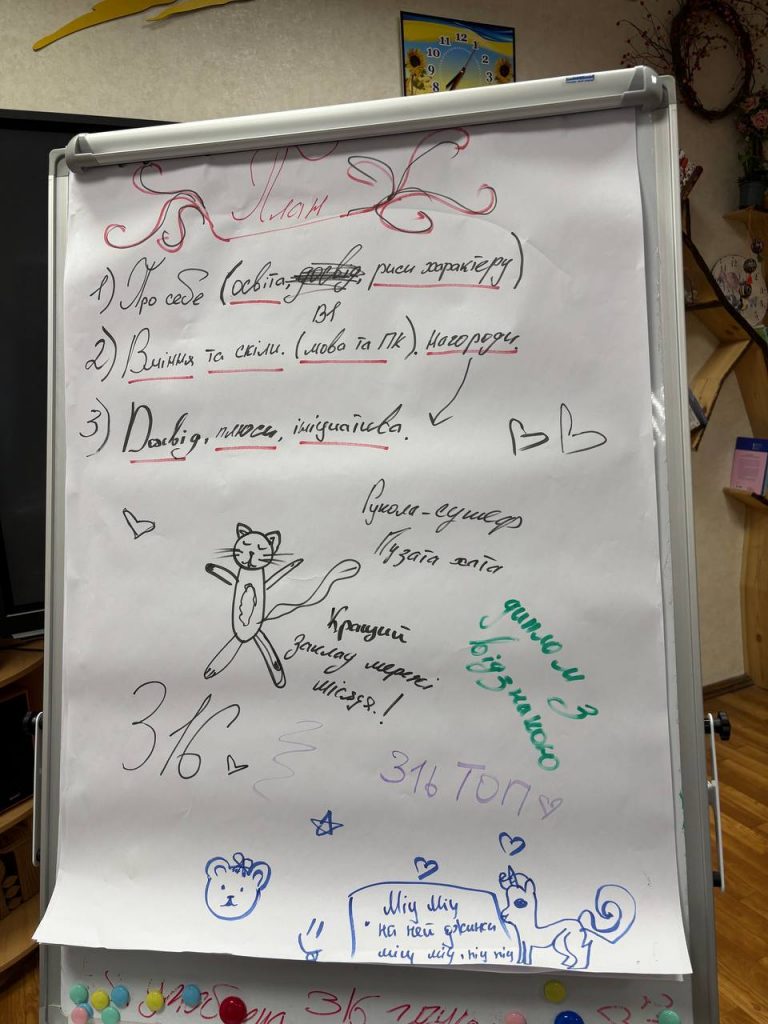 План
1) Про себе (освіта, досвід, риси характеру)
ВІ
2) Вміння та скіли. (мова та ПК). нагороди.
3) Досвід, плюси, ініціатива.
Рукола-сушеф
Пузата хата
Кращий
заклад мережі
місяця.!
диплом з
відзнакою
316
316 ТОП
Міу Міу
на ней джинси
міу міу,
316
11 12 1
10 2
9 3
8